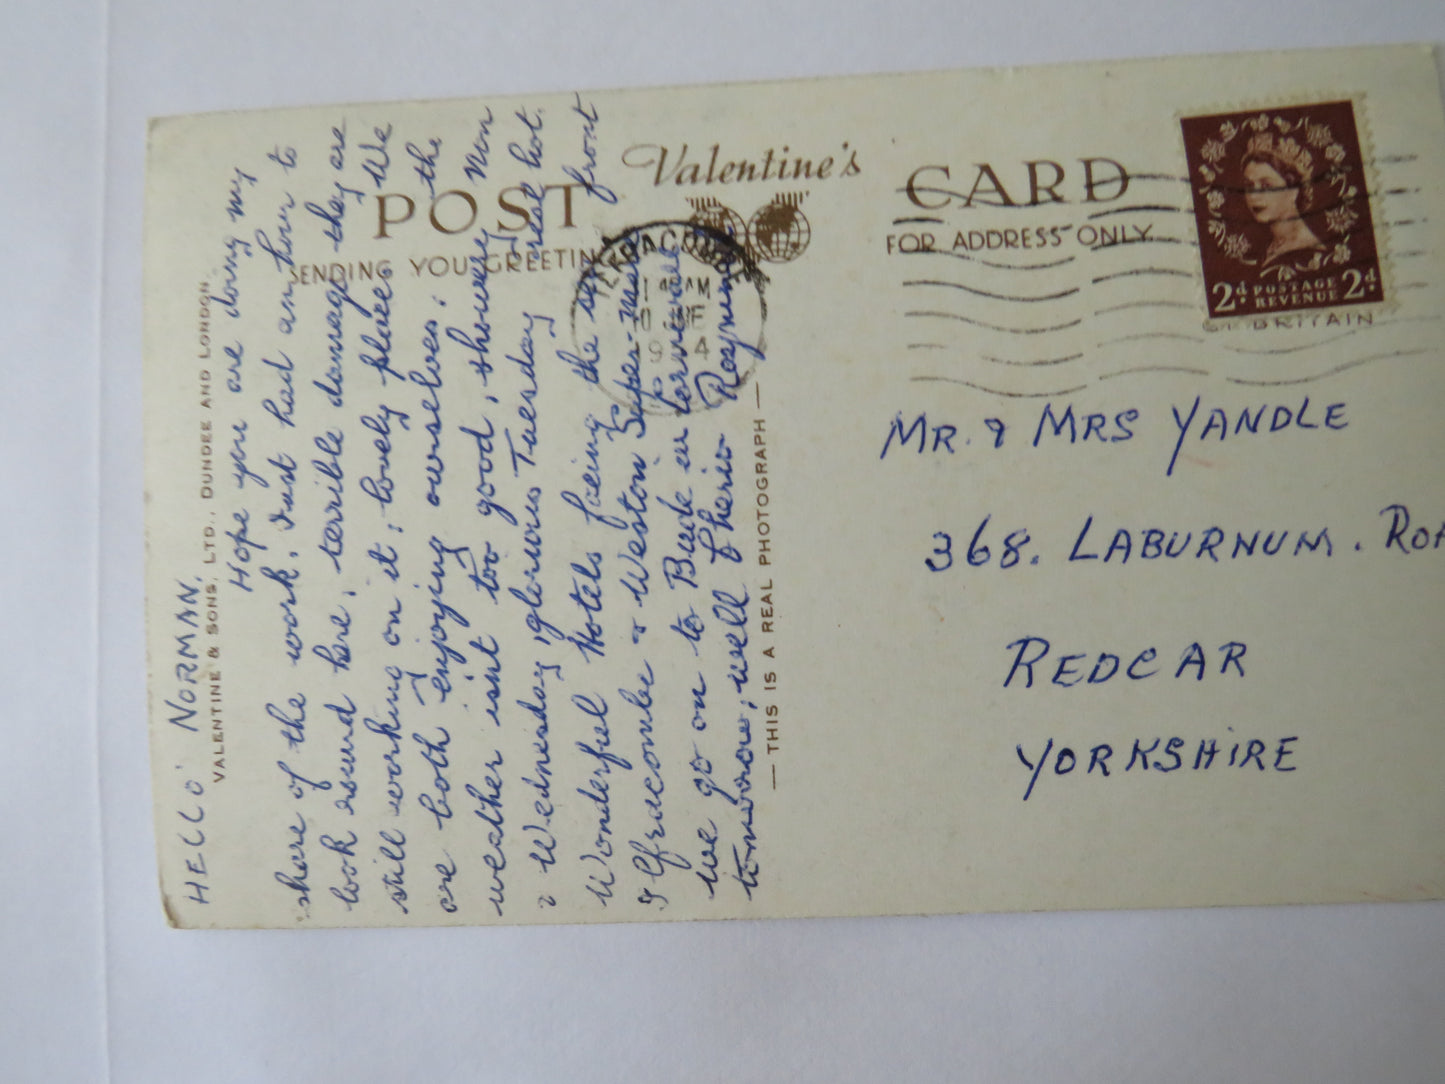 POST
Valentine's
CARD
SENDING YOU GREETINGS
FOR ADDRESS ONLY
VALENTINE & SONS, LTD., DUNDEE AND LONDON.
— THIS IS A REAL PHOTOGRAPH —
2d POSTAGE REVENUE 2d
GT BRITAIN
HELLO NORMAN,
Hope you are doing my
share of the work. Just had an hour to
look round here, terrible damage they are
still working on it, lovely place. We
are both enjoying ourselves, the
weather isnt too good, showery Mon
& Wednesday, glorious Tuesday real hot.
Wonderful Hotels facing the sea front
Ilfracombe & Weston Super-mare
we go on to Bude in Cornwall
tomorrow, well Cherio
MR. & MRS YANDLE
368. LABURNUM. ROA
REDCAR
YORKSHIRE